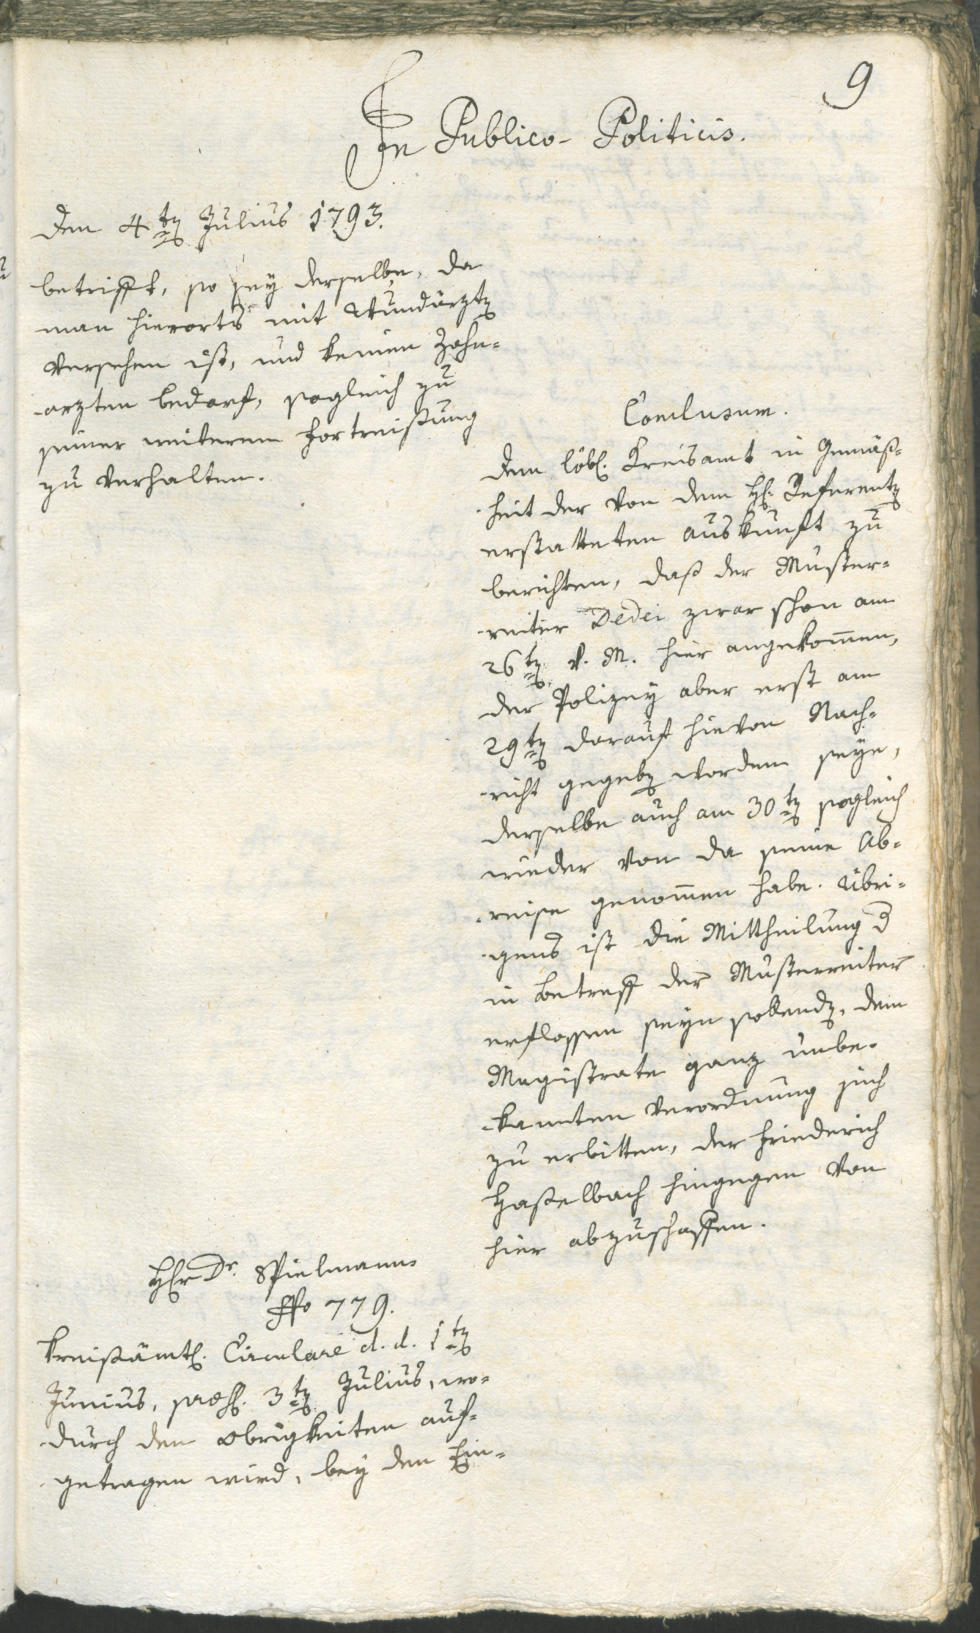 9
In Publico-Politicis.
den 4.ten Julius 1793.
betrifft, so sey derselbe, da
man hierorts mit Wundärzten
versehen ist, und keinen Zahn-
arzten bedarf, sogleich zu
seiner weiteren Fortreißung
zu verhalten.
Conclusum.
Dem löbl. Kreisamt in Gemäß-
heit der von dem H. Referenten
erstatteten Auskunft zu
berichten, daß der Muster-
reiter Dedei zwar schon am
26ten v. M. hier angekommen,
der Polizey aber erst am
29ten darauf hievon Nach-
richt gegeben worden seye,
derselbe auch am 30ten sogleich
wieder von da seine Ab-
reise genommen habe. Übri-
gens ist die Mittheilung d
in Betreff der Musterreiter
erflossen seyn sollenden, dem
Magistrate ganz unbe-
kannten Verordnung sich
zu erbitten, der Friederich
Haßelbach hingegen von
hier abzuschaffen.
Herr Dr. Spielmann
No 779.
Kreißämtl. Circulare d. d. 1ten
Junius, praes. 3ten Julius, wo-
durch den Obrigkeiten auf-
getragen wird, bey den Ein-